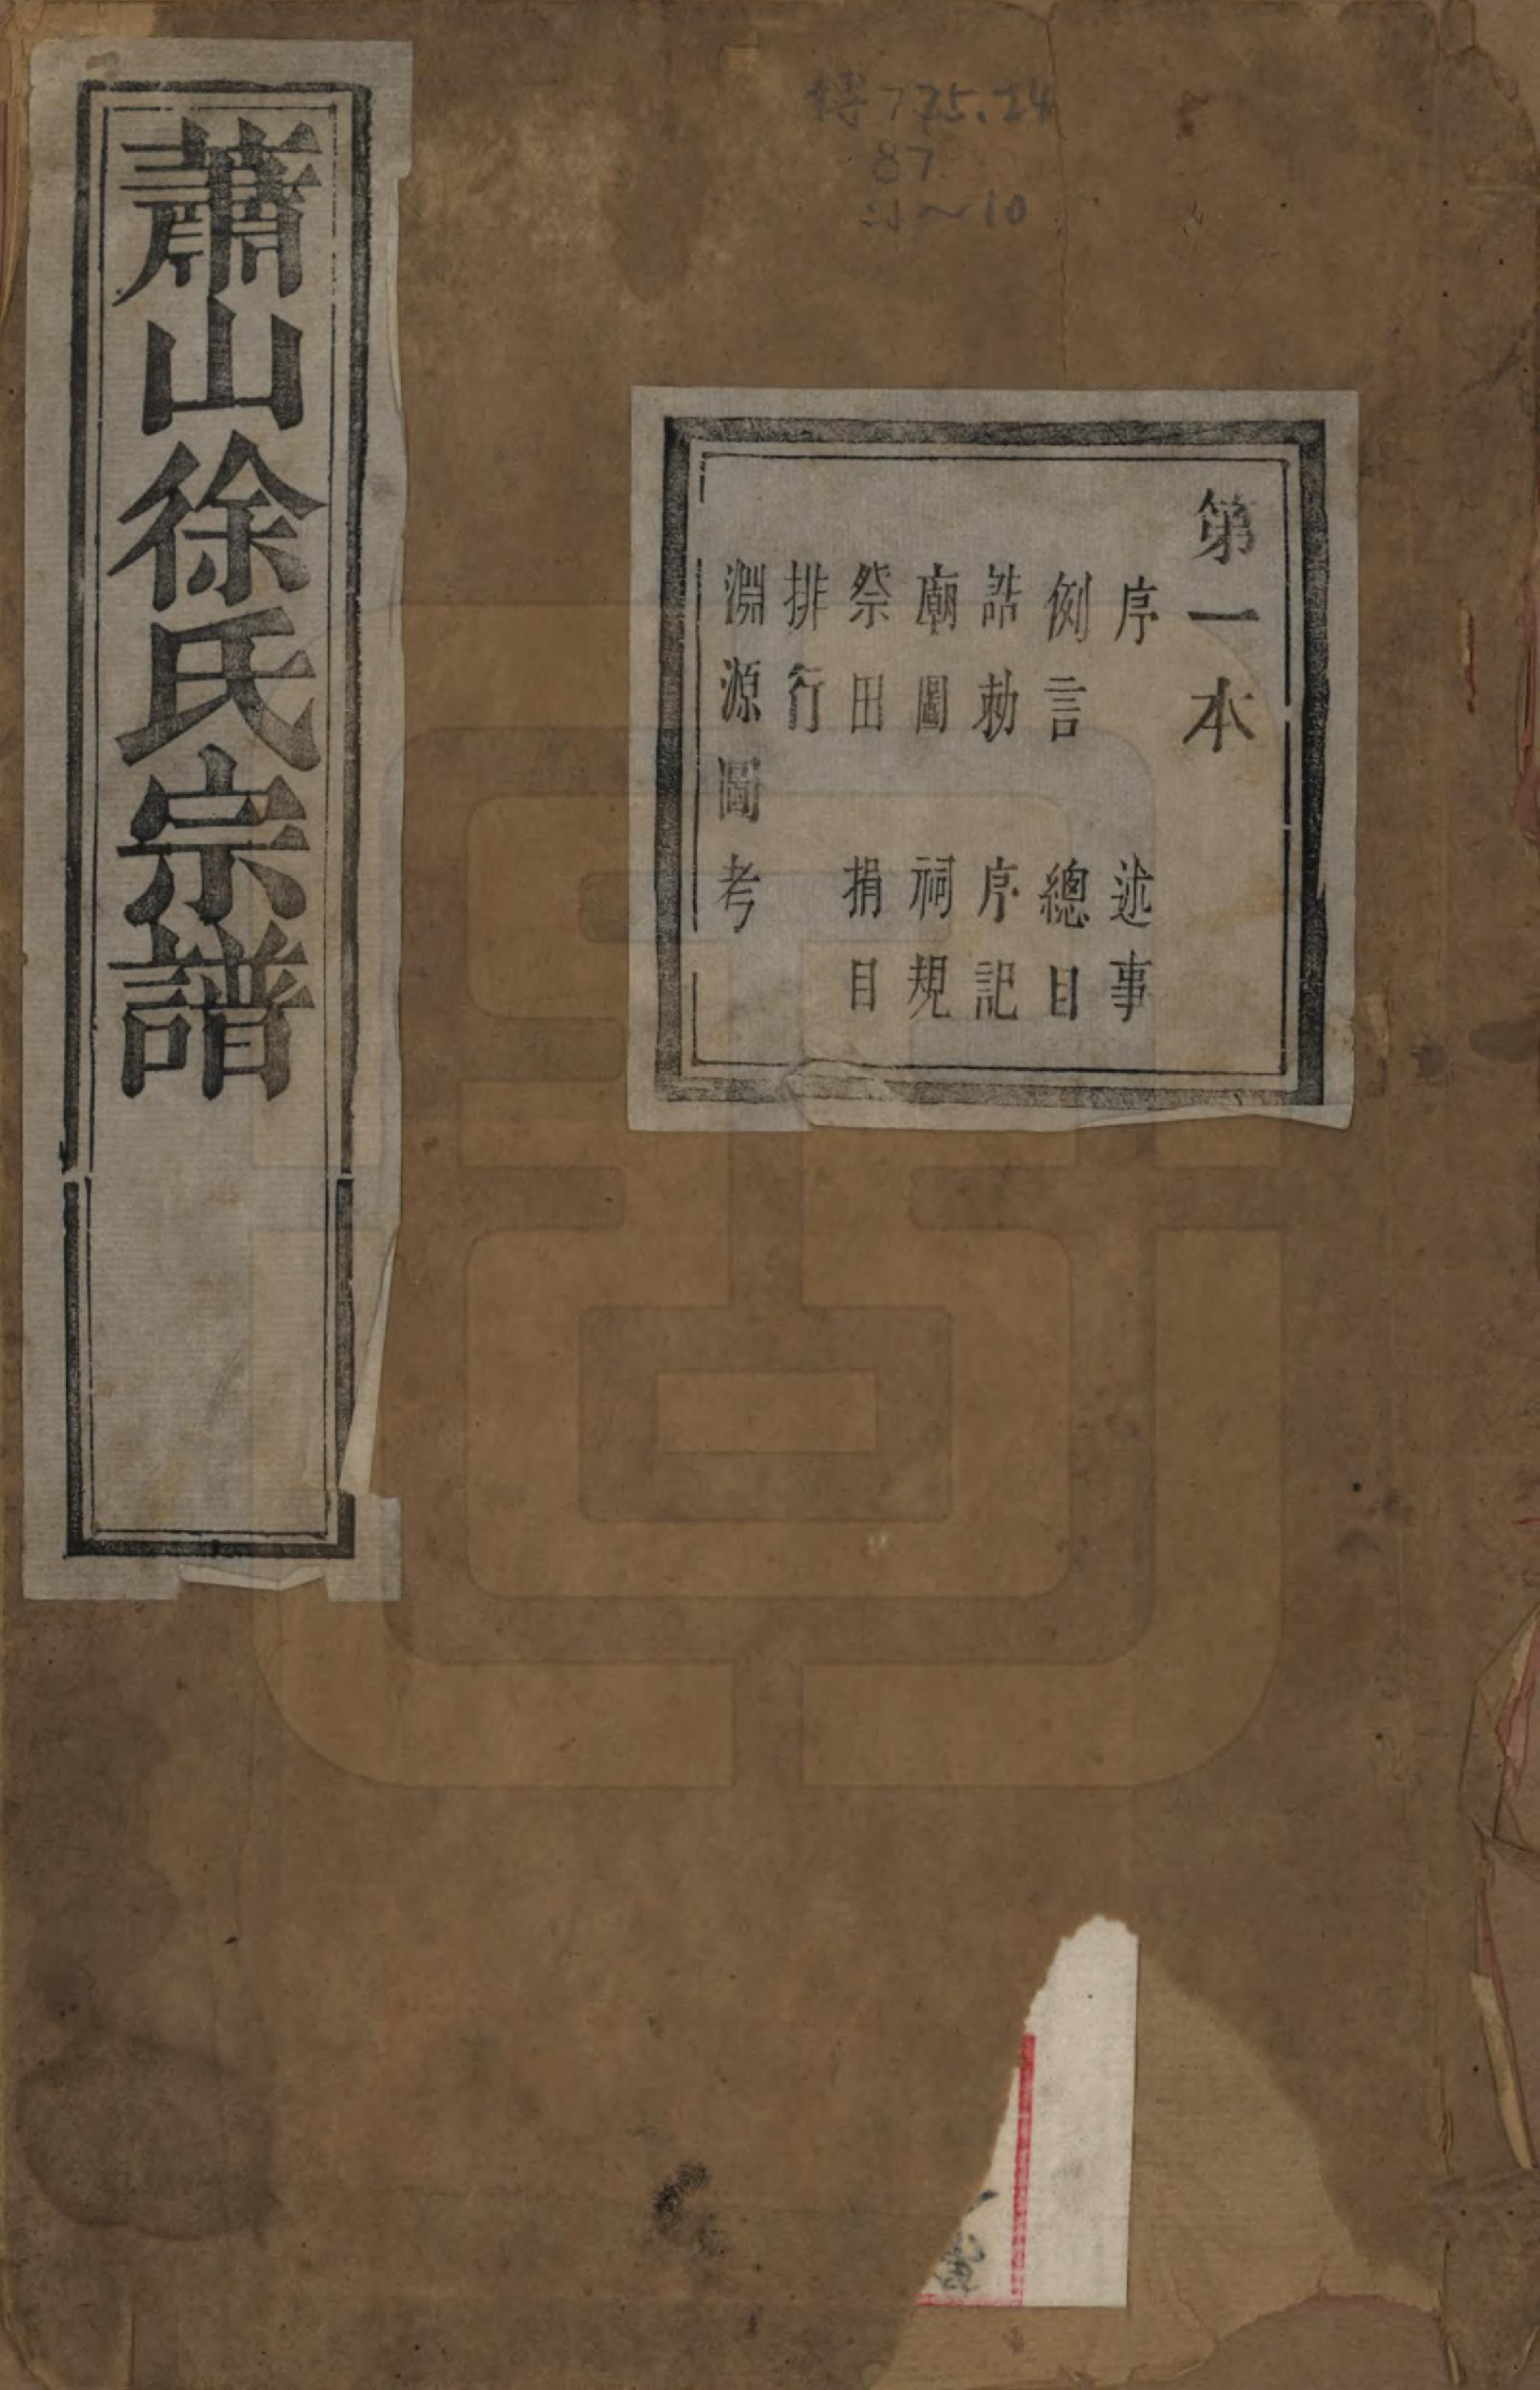 蕭山徐氏宗譜
第一本
序　述事
例言　總目
誥勅　序記
廟圖　祠規
祭田　捐目
排行
淵源圖考
775.24
87